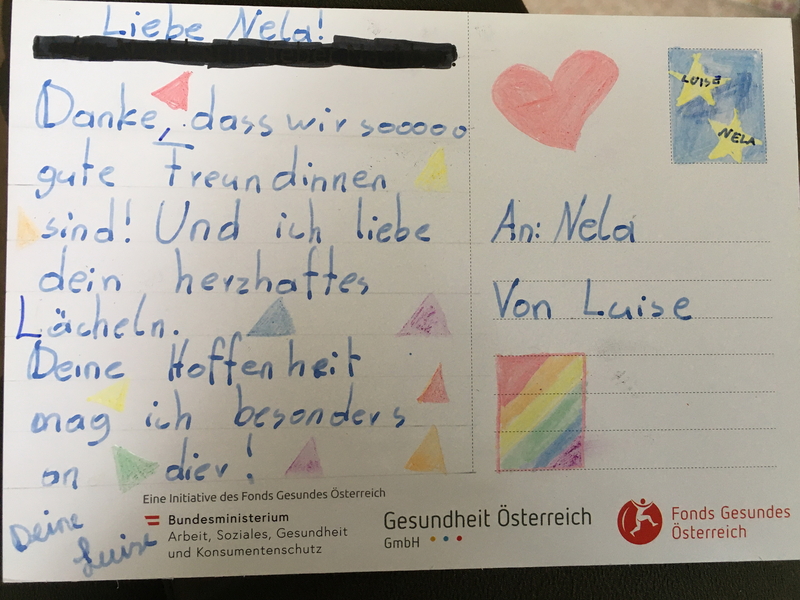 Liebe Nela!
Danke, dass wir sooooo
gute Freundinnen
sind! Und ich liebe
dein herzhaftes
Lächeln.
Deine Hoffenheit
mag ich besonders
an dier!
Deine
Luise
LUISE
NELA
An: Nela
Von Luise
Eine Initiative des Fonds Gesundes Österreich
Bundesministerium
Arbeit, Soziales, Gesundheit
und Konsumentenschutz
Gesundheit Österreich
GmbH
Fonds Gesundes
Österreich